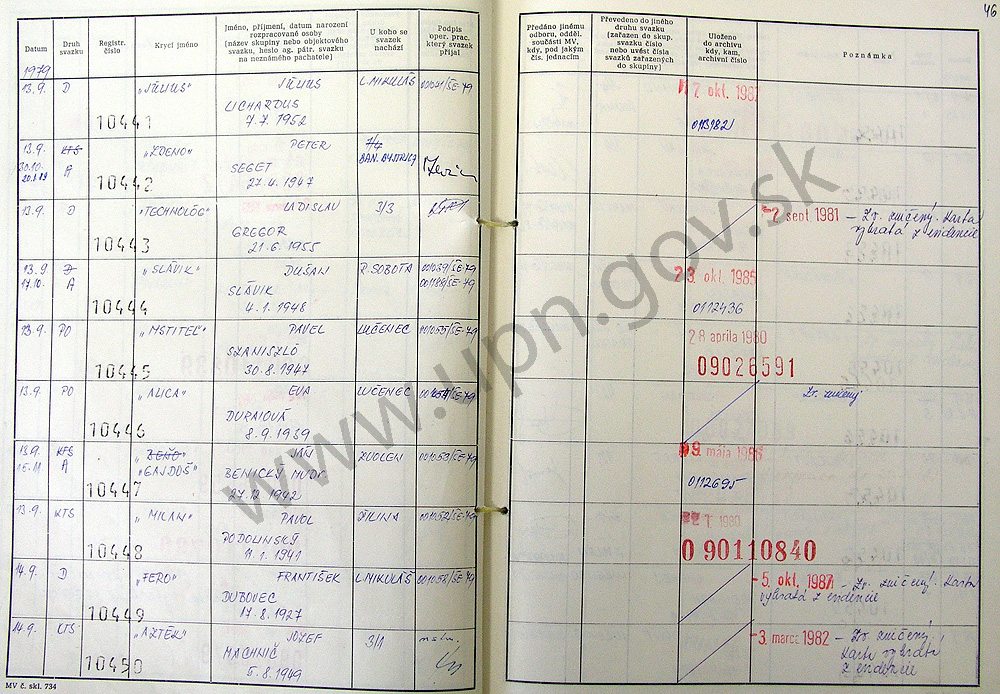 46
Datum
Druh svazku
Registr. číslo
Krycí jméno
Jméno, příjmení, datum narození
rozpracované osoby
(název skupiny nebo objektového
svazku, heslo ag. pátr. svazku
na neznámého pachatele)
U koho se
svazek
nachází
Podpis
oper. prac.
který svazek
přijal
Předáno jinému
odboru, odděl.
součásti MV,
kdy, pod jakým
čís. jednacím
Převedeno do jiného
druhu svazku
(zařazen do skup.
svazku číslo
nebo uvést čísla
svazků zařazených
do skupiny)
Uloženo
do archivu
kdy, kam,
archivní číslo
Poznámka
1979
13.9. D 10441 "JÚLIUS" JÚLIUS L. MIKULÁŠ
LICHARDUS
7.7. 1952
7 okt. 198
0113182
13.9. KTS 10442 "ZDENO" PETER 7/4
30.10. A BAN. BYSTRICA
SEGET
27.4. 1947
13.9. D 10443 "TECHNOLÓG" LADISLAV 3/3
GREGOR
21.6. 1955
2 sept 1981 – Zv. zničený. Karta
vybratá z evidencie
13.9 10444 "SLÁVIK" DUŠAN R. SOBOTA 001039/ŠE-79
17.10. A 001188/ŠE-79
SLÁVIK
4.1. 1948
23. okt. 1985
0112436
13.9. PO 10445 "MSTITEĽ" PAVEL LUČENEC 001055/ŠE-79
SZANISZLÓ
30.8. 1947
28 apríla 1980
09026591
13.9. PO 10446 "ALICA" EVA LUČENEC
DURAIOVÁ
8.9. 1939
Zv. zničený
13.9. KTS 10447 "ZEŇO" JÁN ZVOLEN 001053/ŠE-79
15.11 A "GAJDOŠ"
BENICKÝ MUDr.
27.12. 1942
9 mája 198
0112695
13.9. KTS 10448 "MILAN" PAVOL ŽILINA 001052/ŠE-79
PODOLINSKÝ
1941
1980
0 90110840
14.9. D 10449 "FERO" FRANTIŠEK L. MIKULÁŠ 001058/ŠE-79
DUBOVEC
17.8. 1927
5. okt. 1987 – Zv. zničený. Karta
vybratá z evidencie
14.9. KTS 10450 "AZTÉK" JOZEF 3/1
MACHNIČ
5.8. 1949
3. marca 1982 – Zv. zničený.
Karta vybratá
z evidencie
MV č. skl. 734
www.upn.gov.sk